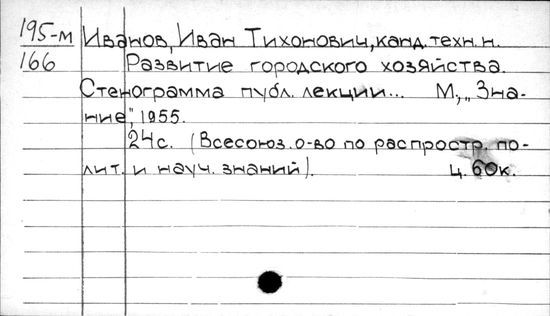 195-м Иванов, Иван Тихонович, канд. техн. н.
166 Развитие городского хозяйства.
Стенограмма публ. лекции... М., „Зна-
ние", 1955.
24с. (Всесоюз. о-во по распростр. по-
лит. и науч. знаний). ц. 60к.